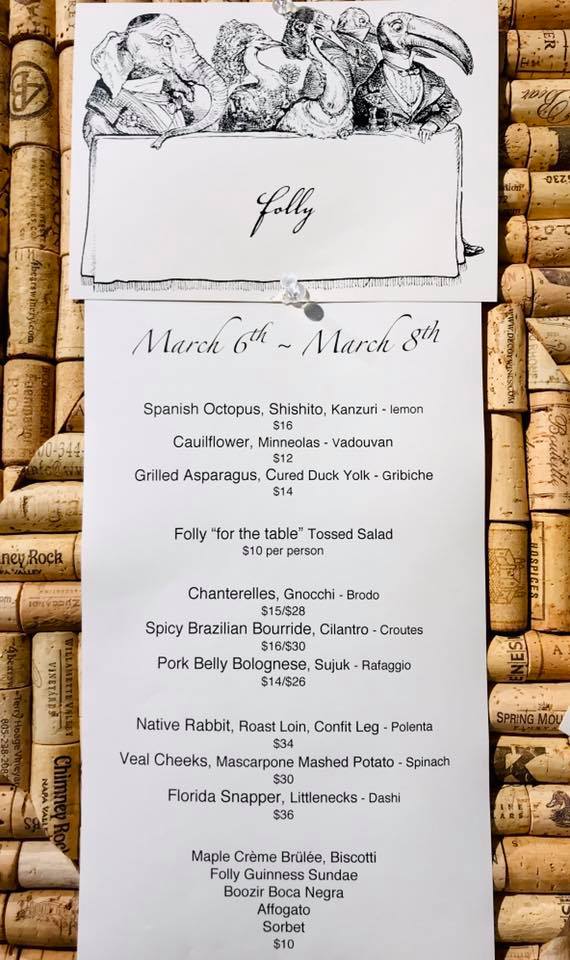 folly
March 6th ~ March 8th
Spanish Octopus, Shishito, Kanzuri - lemon
$16
Cauilflower, Minneolas - Vadouvan
$12
Grilled Asparagus, Cured Duck Yolk - Gribiche
$14
Folly “for the table” Tossed Salad
$10 per person
Chanterelles, Gnocchi - Brodo
$15/$28
Spicy Brazilian Bourride, Cilantro - Croutes
$16/$30
Pork Belly Bolognese, Sujuk - Rafaggio
$14/$26
Native Rabbit, Roast Loin, Confit Leg - Polenta
$34
Veal Cheeks, Mascarpone Mashed Potato - Spinach
$30
Florida Snapper, Littlenecks - Dashi
$36
Maple Crème Brülée, Biscotti
Folly Guinness Sundae
Boozir Boca Negra
Affogato
Sorbet
$10
Chimney Rock
NAPA VALLEY
WILLAMETTE VALLEY
VINEYARDS
SPRING MOU
HOSPICES